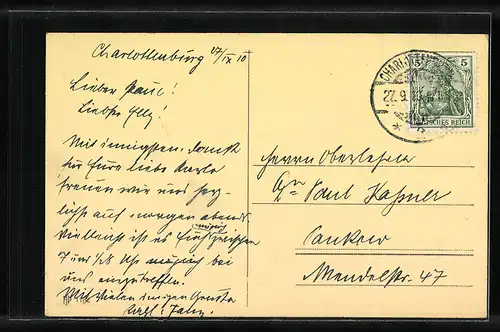 Charlottenburg 27/IX 10
Lieber Paul!
Liebste Elly!
Mit innigstem Dank
für Eure liebe Karte
freuen wir uns herz-
lichst auf morgen abend.
Vielleicht ist es Euch
möglich
7 und 1/2 8 Uhr bei
uns einzutreffen.
Mit vielen innigen
CHARLOTTENBURG
27.9.10
5
DEUTSCHES REICH
Herrn Oberlehrer
Dr. Paul Kassner
Pankow
Mendelstr. 47